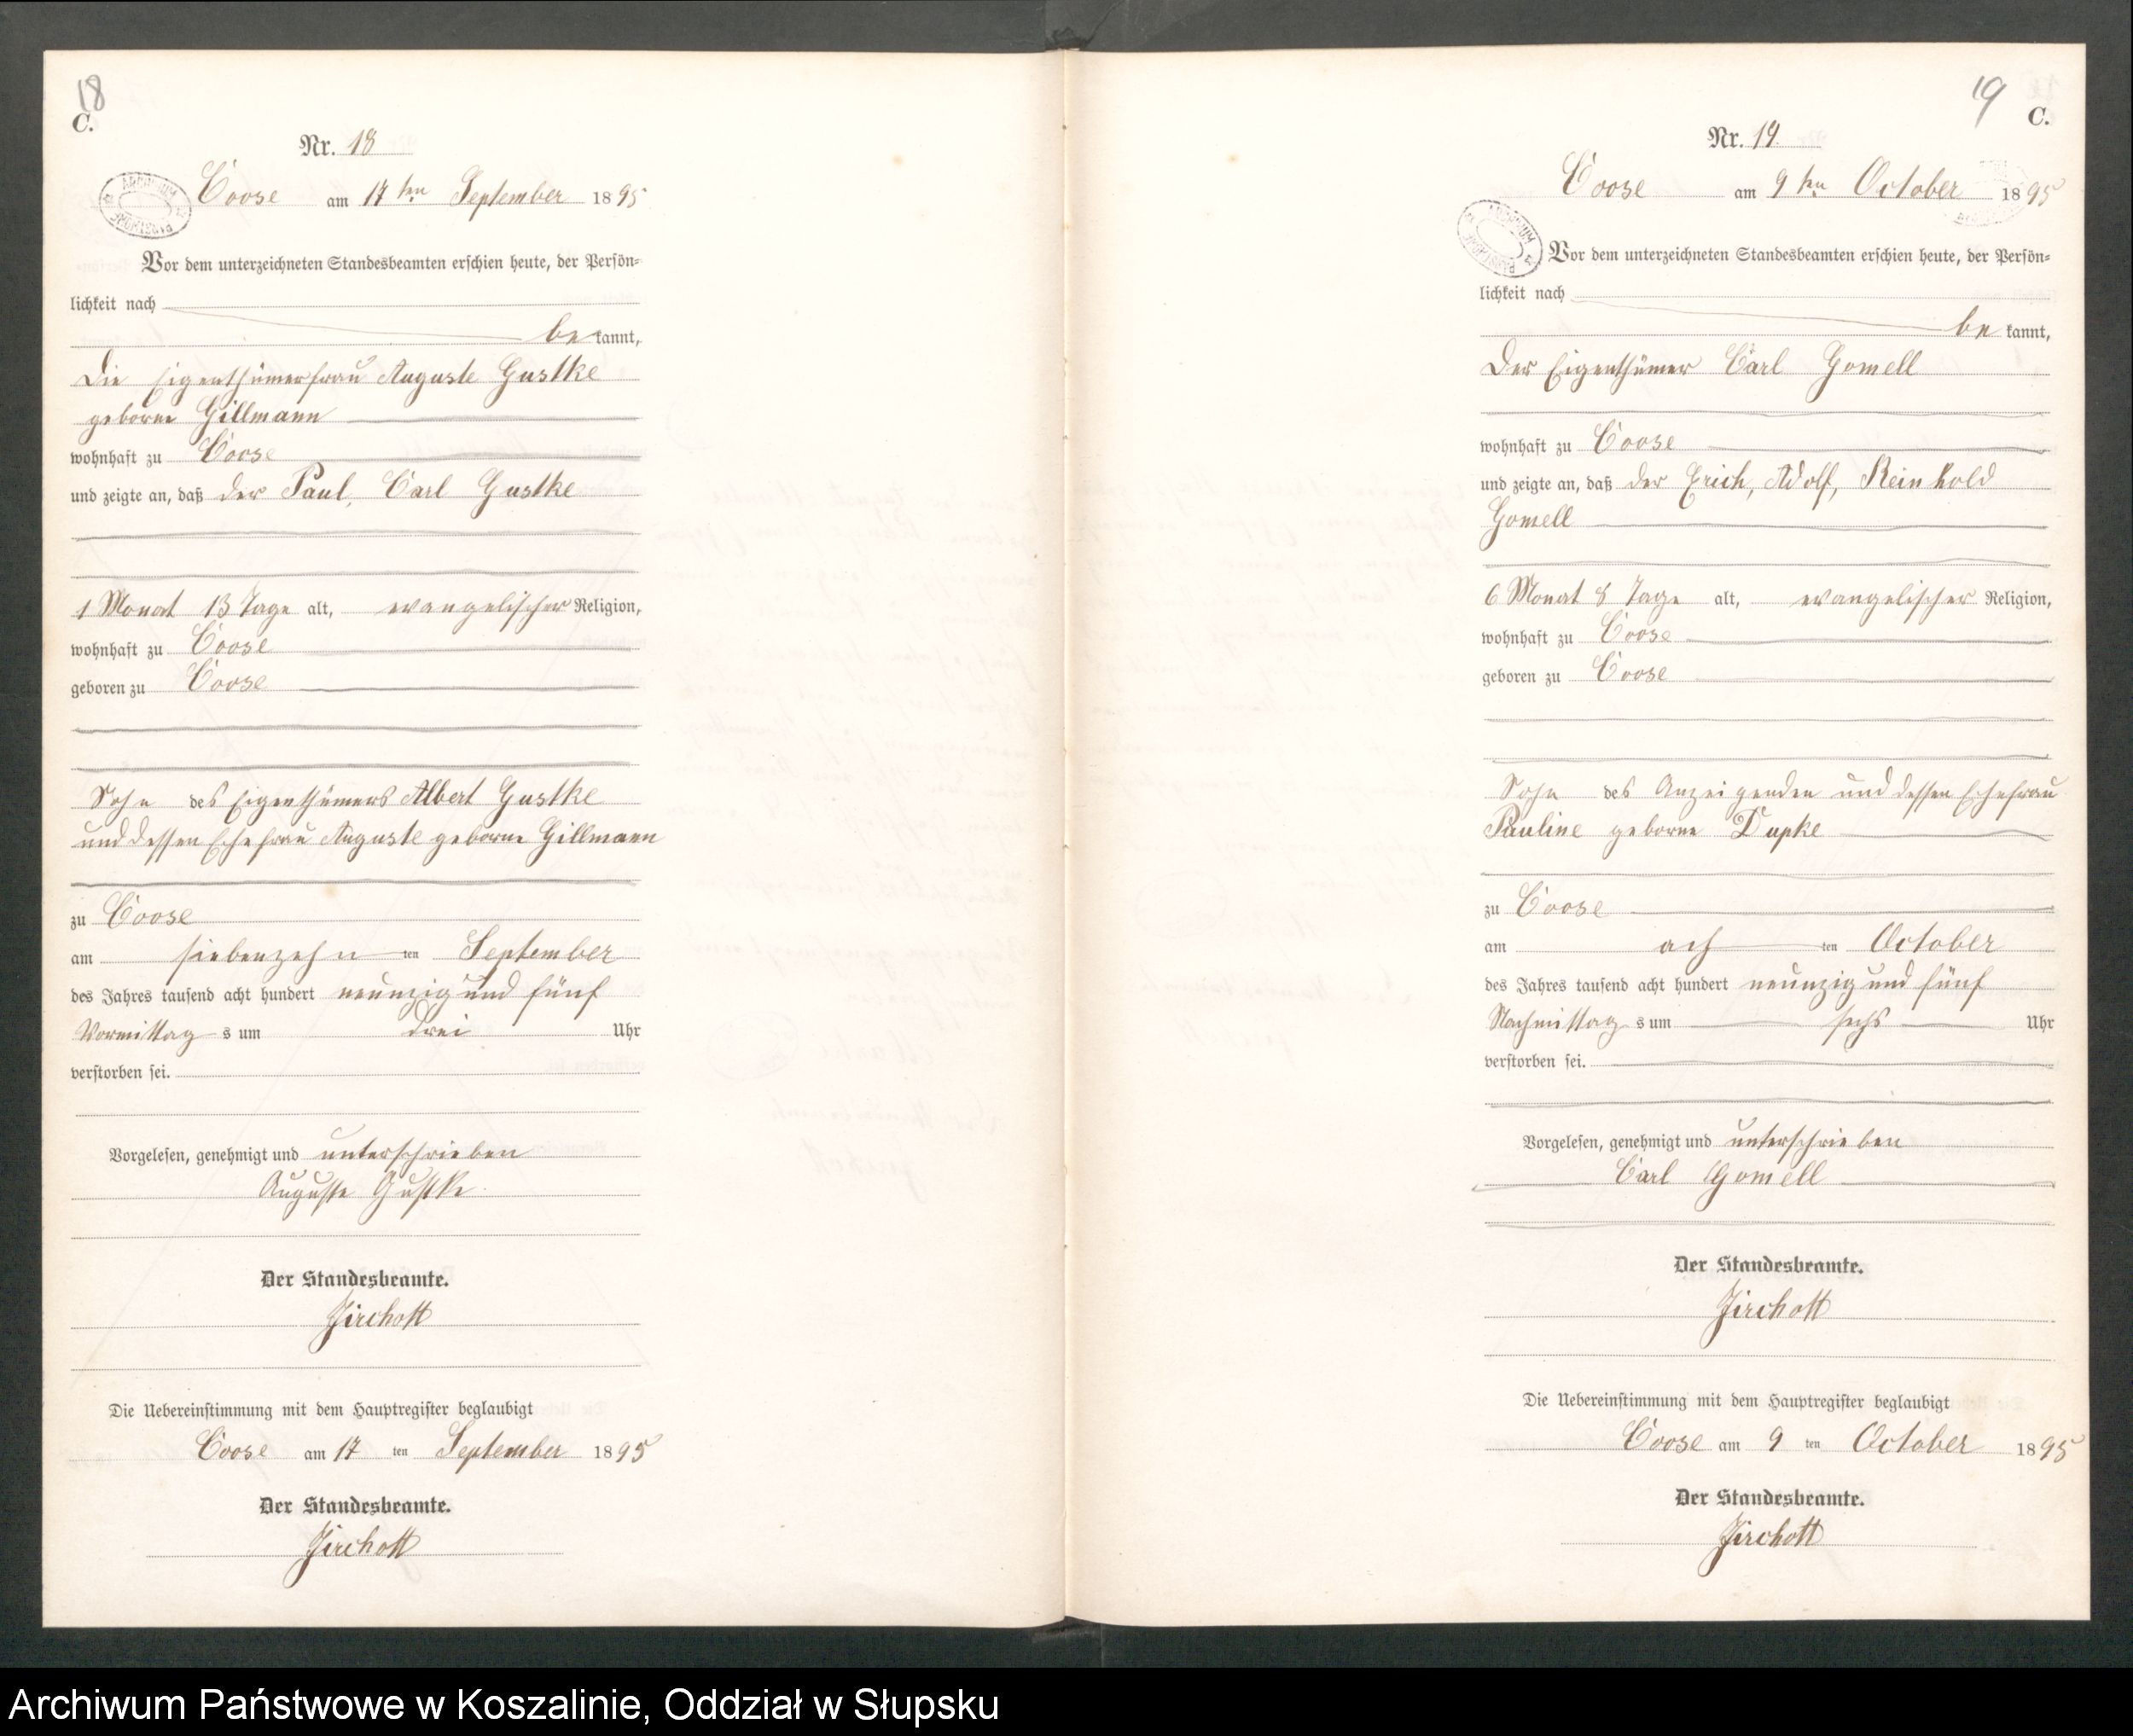 18
C.
Nr. 18
Coose am 17ten September 1895
Vor dem unterzeichneten Standesbeamten erschien heute, der Persön-
lichkeit nach
be kannt,
Die Eigenthümerfrau Auguste Gustke
geborne Gillmann
wohnhaft zu Coose
und zeigte an, daß der Paul, Carl Gustke
1 Monat 13 Tage alt, evangelischer Religion,
wohnhaft zu Coose
geboren zu Coose
Sohn des Eigenthümers Albert Gustke
und dessen Ehefrau Auguste geborne Gillmann
zu Coose
am siebenzehn ten September
des Jahres tausend acht hundert neunzig und fünf
Vormittag s um drei Uhr
verstorben sei.
Vorgelesen, genehmigt und unterschrieben
Auguste Gustke
Der Standesbeamte.
Zirchott
Die Uebereinstimmung mit dem Hauptregister beglaubigt
Coose am 17 ten September 1895
Der Standesbeamte.
Zirchott
19
C.
Nr. 19.
Coose am 9ten October 1895
Vor dem unterzeichneten Standesbeamten erschien heute, der Persön-
lichkeit nach
be kannt,
Der Eigenthümer Carl Gomell
wohnhaft zu Coose
und zeigte an, daß der Erich, Adolf, Reinhold
Gomell
6 Monat 8 Tage alt, evangelischer Religion,
wohnhaft zu Coose
geboren zu Coose
Sohn des Anzeigenden und dessen Ehefrau
Pauline geborne Dupke
zu Coose
am ach ten October
des Jahres tausend acht hundert neunzig und fünf
Nachmittag s um sechs Uhr
verstorben sei.
Vorgelesen, genehmigt und unterschrieben
Carl Gomell
Der Standesbeamte.
Zirchott
Die Uebereinstimmung mit dem Hauptregister beglaubigt
Coose am 9 ten October 1895
Der Standesbeamte.
Zirchott
Archiwum Państwowe w Koszalinie, Oddział w Słupsku